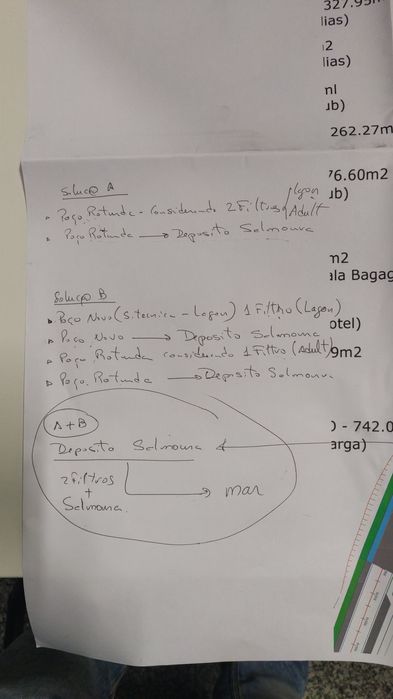 327.95m
lias)
2
lias)
nl
ub)
262.27m
76.60m2
ub)
m2
ala Bagag
otel)
9m2
0 - 742.0
arga)
Solução A
Poço Rotunda - Considerando 2 Filtros Lagon
Adult
Poço Rotunda → Deposito Salmoura
Solução B
Poço Novo (S. tecnica - Lagon) 1 Filtro (Lagon)
Poço Novo → Deposito Salmoura
Poço Rotunda considerando 1 Filtro (Adult)
Poço Rotunda → Deposito Salmoura
A+B
Deposito Salmoura
2 filtros
+
Salmoura
mar